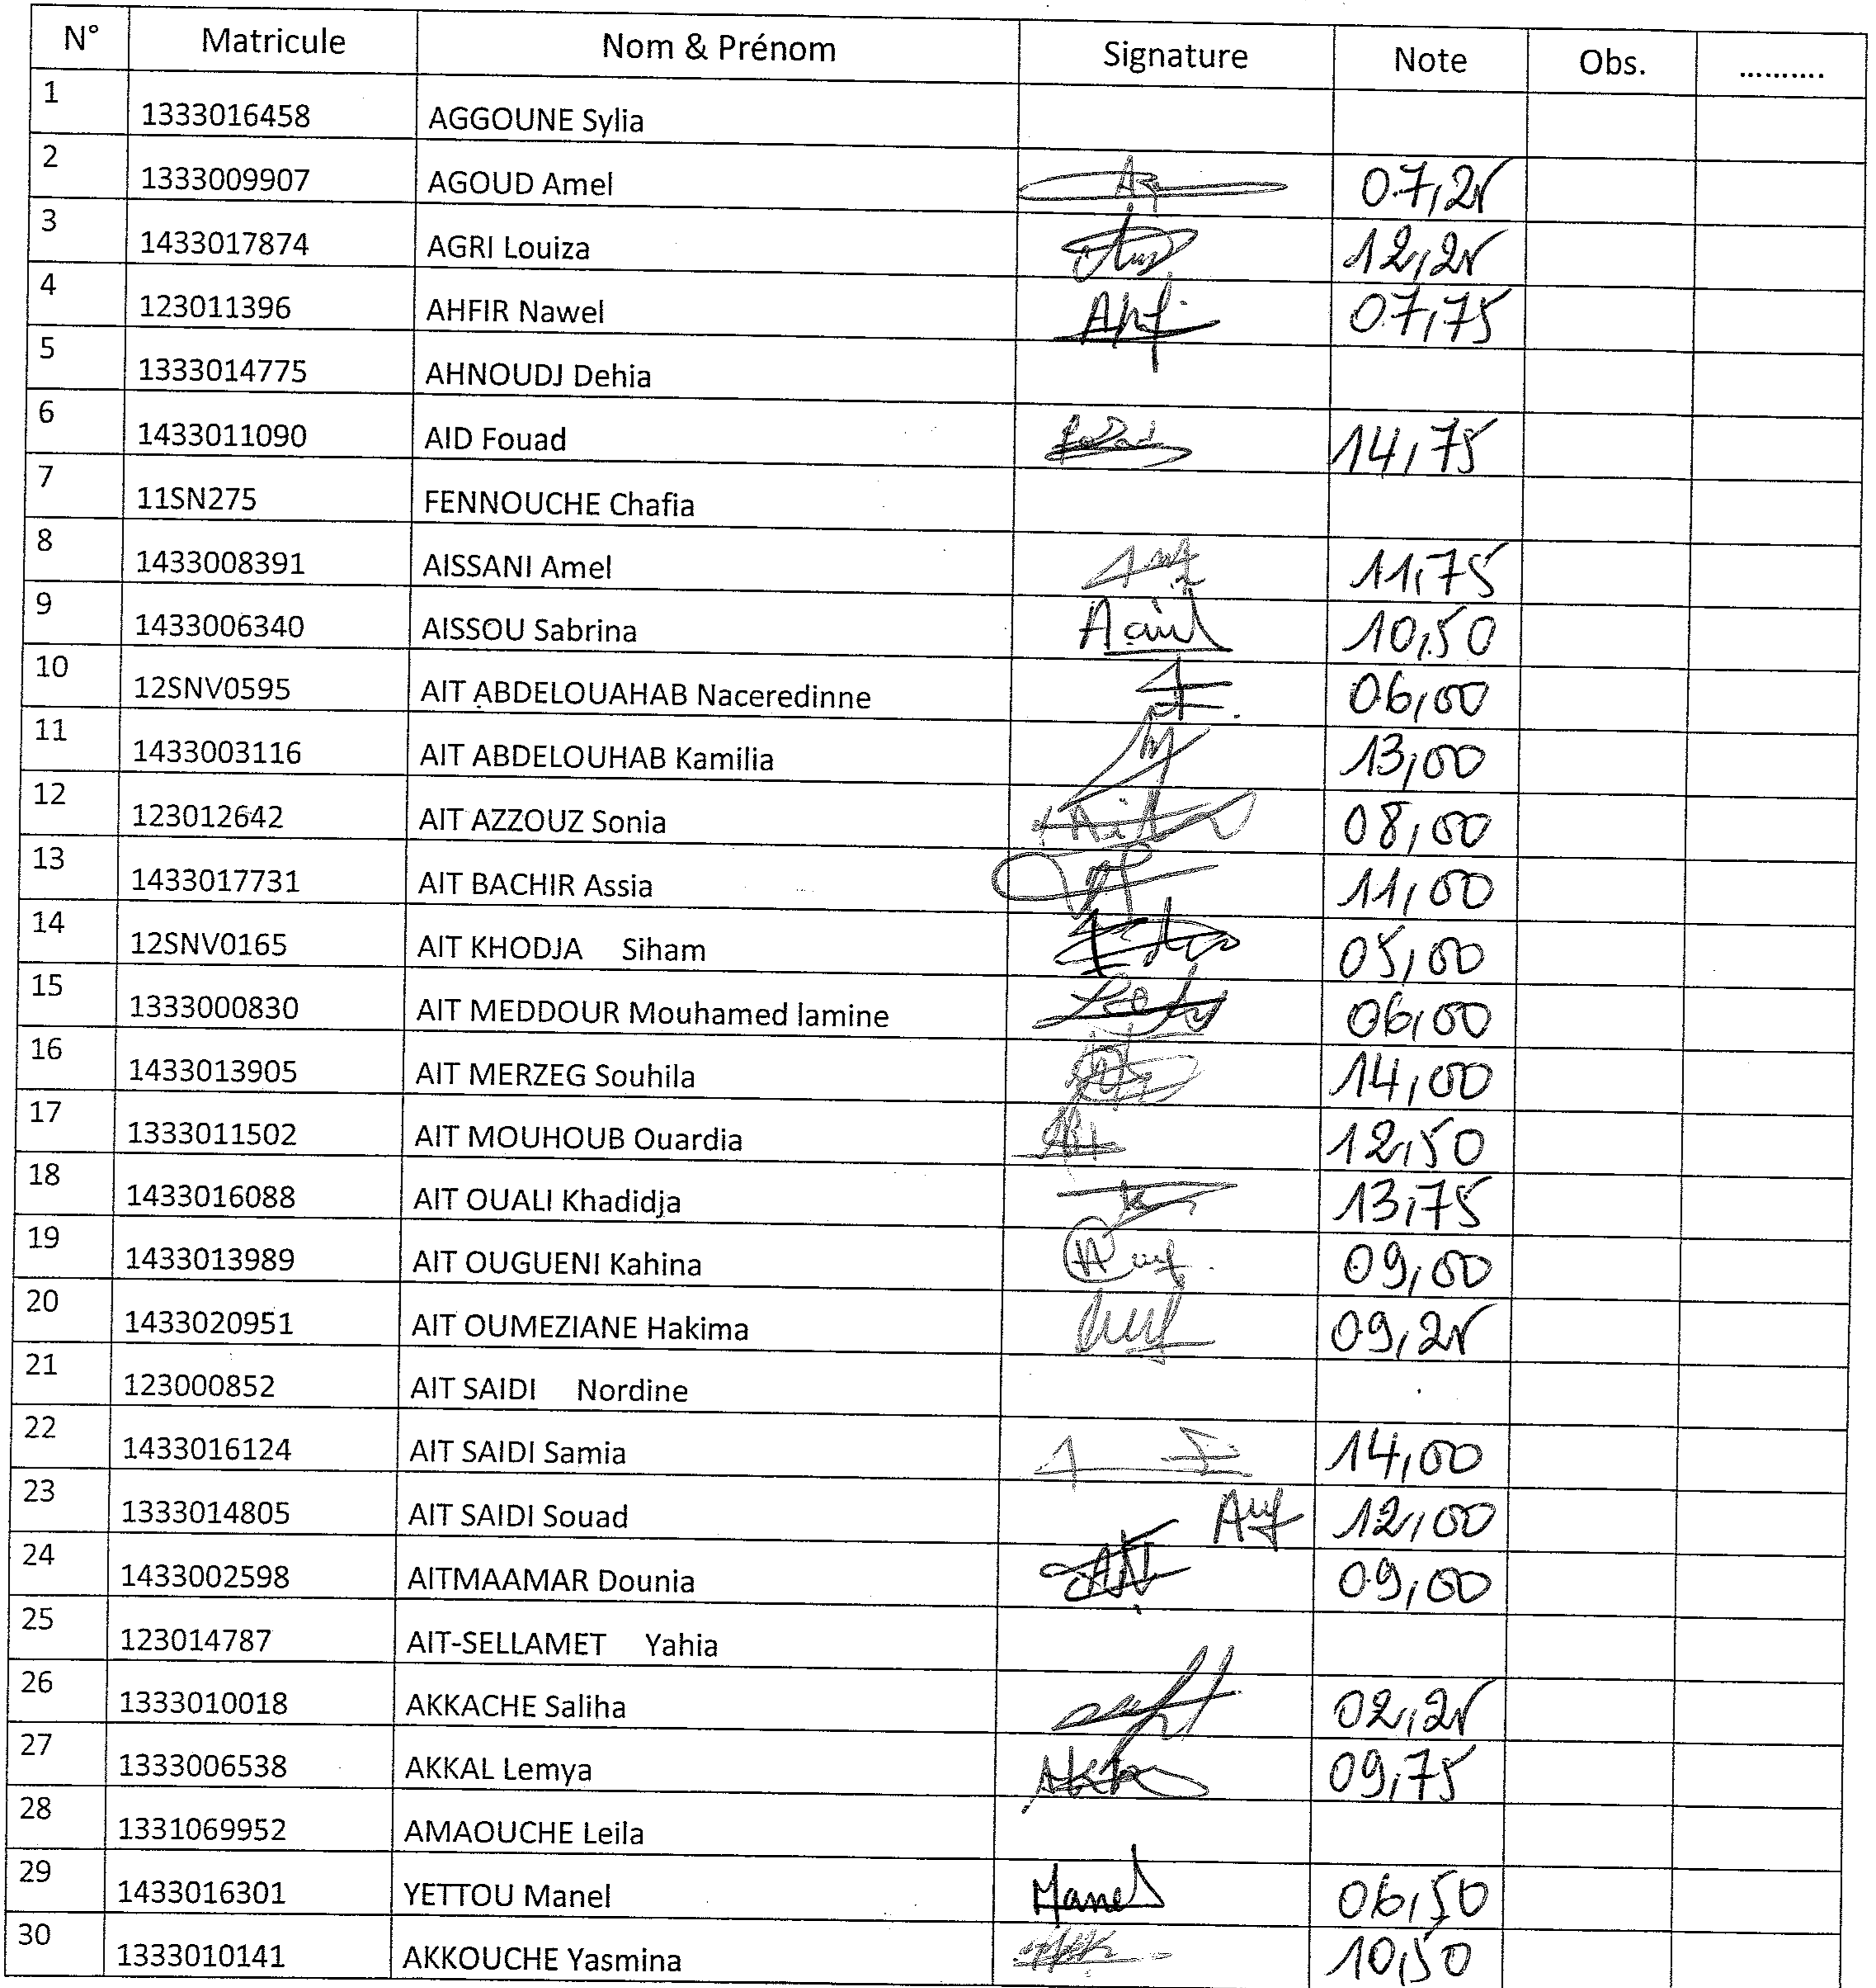 N° Matricule Nom & Prénom Signature Note Obs. ..........
1 1333016458 AGGOUNE Sylia
2 1333009907 AGOUD Amel 07,25
3 1433017874 AGRI Louiza 12,25
4 123011396 AHFIR Nawel 07,75
5 1333014775 AHNOUDJ Dehia
6 1433011090 AID Fouad 14,75
7 11SN275 FENNOUCHE Chafia
8 1433008391 AISSANI Amel 11,75
9 1433006340 AISSOU Sabrina 10,50
10 12SNV0595 AIT ABDELOUAHAB Naceredinne 06,00
11 1433003116 AIT ABDELOUHAB Kamilia 13,00
12 123012642 AIT AZZOUZ Sonia 08,00
13 1433017731 AIT BACHIR Assia 11,00
14 12SNV0165 AIT KHODJA Siham 05,00
15 1333000830 AIT MEDDOUR Mouhamed lamine 06,00
16 1433013905 AIT MERZEG Souhila 14,00
17 1333011502 AIT MOUHOUB Ouardia 12,50
18 1433016088 AIT OUALI Khadidja 13,75
19 1433013989 AIT OUGUENI Kahina 09,00
20 1433020951 AIT OUMEZIANE Hakima 09,25
21 123000852 AIT SAIDI Nordine
22 1433016124 AIT SAIDI Samia 14,00
23 1333014805 AIT SAIDI Souad 12,00
24 1433002598 AITMAAMAR Dounia 09,00
25 123014787 AIT-SELLAMET Yahia
26 1333010018 AKKACHE Saliha 02,25
27 1333006538 AKKAL Lemya 09,75
28 1331069952 AMAOUCHE Leila
29 1433016301 YETTOU Manel Manel 06,50
30 1333010141 AKKOUCHE Yasmina 10,50